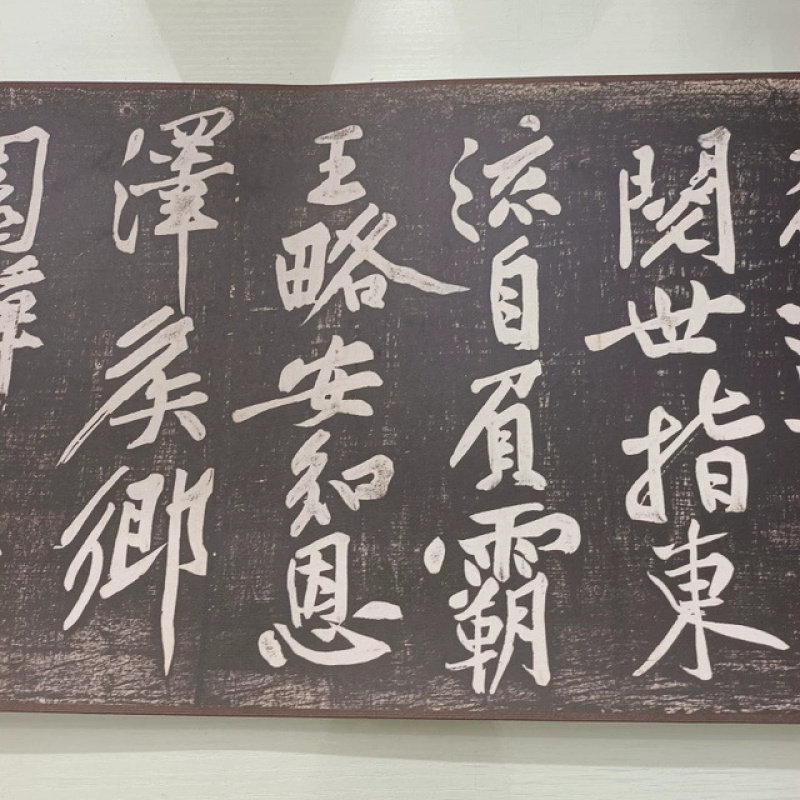 閱世指東
流自負霸
王略安知恩
澤侯鄉
園